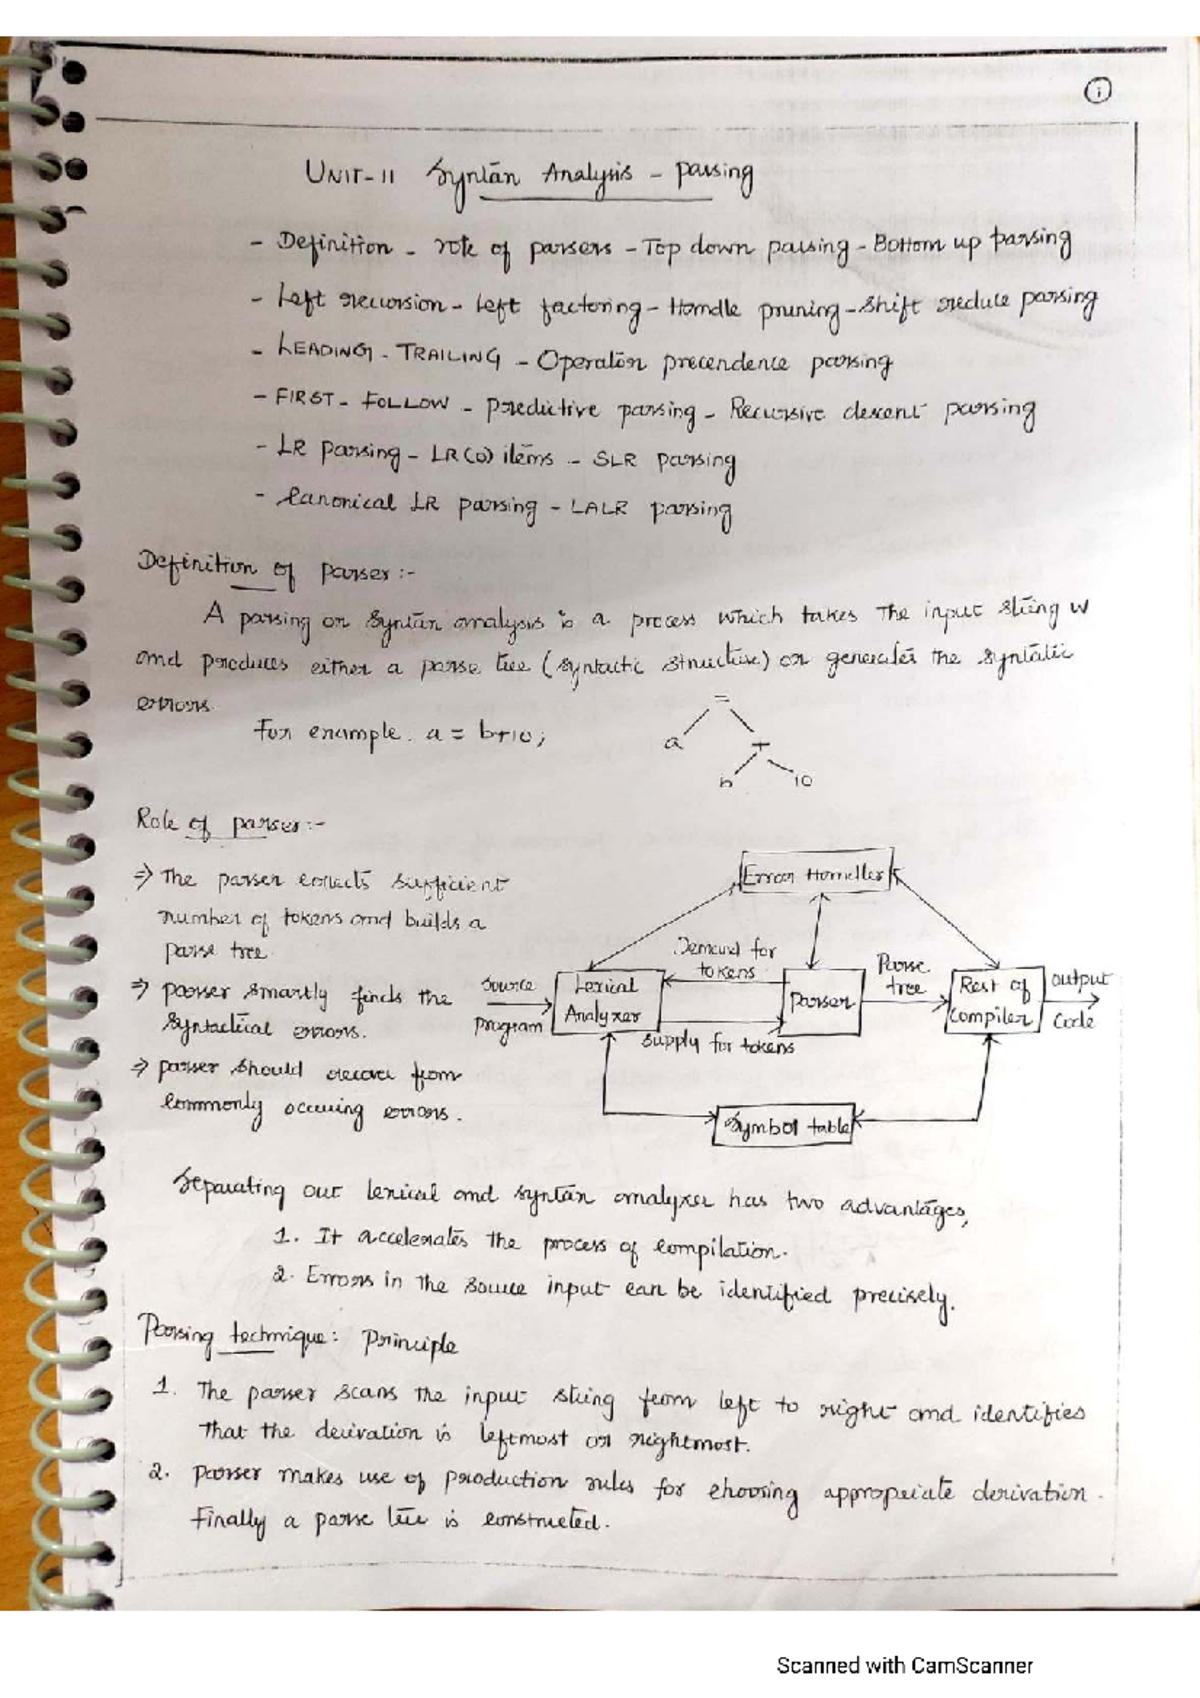 1
UNIT-II Syntax Analysis - Parsing
- Definition - role of parsers - Top down parsing - Bottom up parsing
- Left recursion - Left factoring - Handle pruning - Shift reduce parsing
- LEADING - TRAILING - Operator precendence parsing
- FIRST - FOLLOW - Predictive parsing - Recursive descent parsing
- LR parsing - LR(0) items - SLR parsing
- Canonical LR parsing - LALR parsing
Definition of parser :-
A parsing or syntax analysis is a process which takes the input string w
and produces either a parse tree (syntactic structure) or generates the syntatic
errors.
For example. a = b+10;
=
a +
b 10
Role of parser :-
⇒ The parser collects sufficient
number of tokens and builds a
parse tree.
⇒ parser smartly finds the
syntactical errors.
⇒ parser should recover from
commonly occuring errors.
Error Handler
Demand for
tokens
Source
program
Lexical
Analyzer
Parser
Parse
tree
Rest of
compiler
output
code
supply for tokens
Symbol table
Separating out lexical and syntax analyzer has two advantages,
1. It accelerates the process of compilation.
2. Errors in the source input can be identified precisely.
Parsing technique: Principle
1. The parser scans the input string from left to right and identifies
that the derivation is leftmost or rightmost.
2. Parser makes use of production rules for choosing appropriate derivation.
Finally a parse tree is constructed.
Scanned with CamScanner